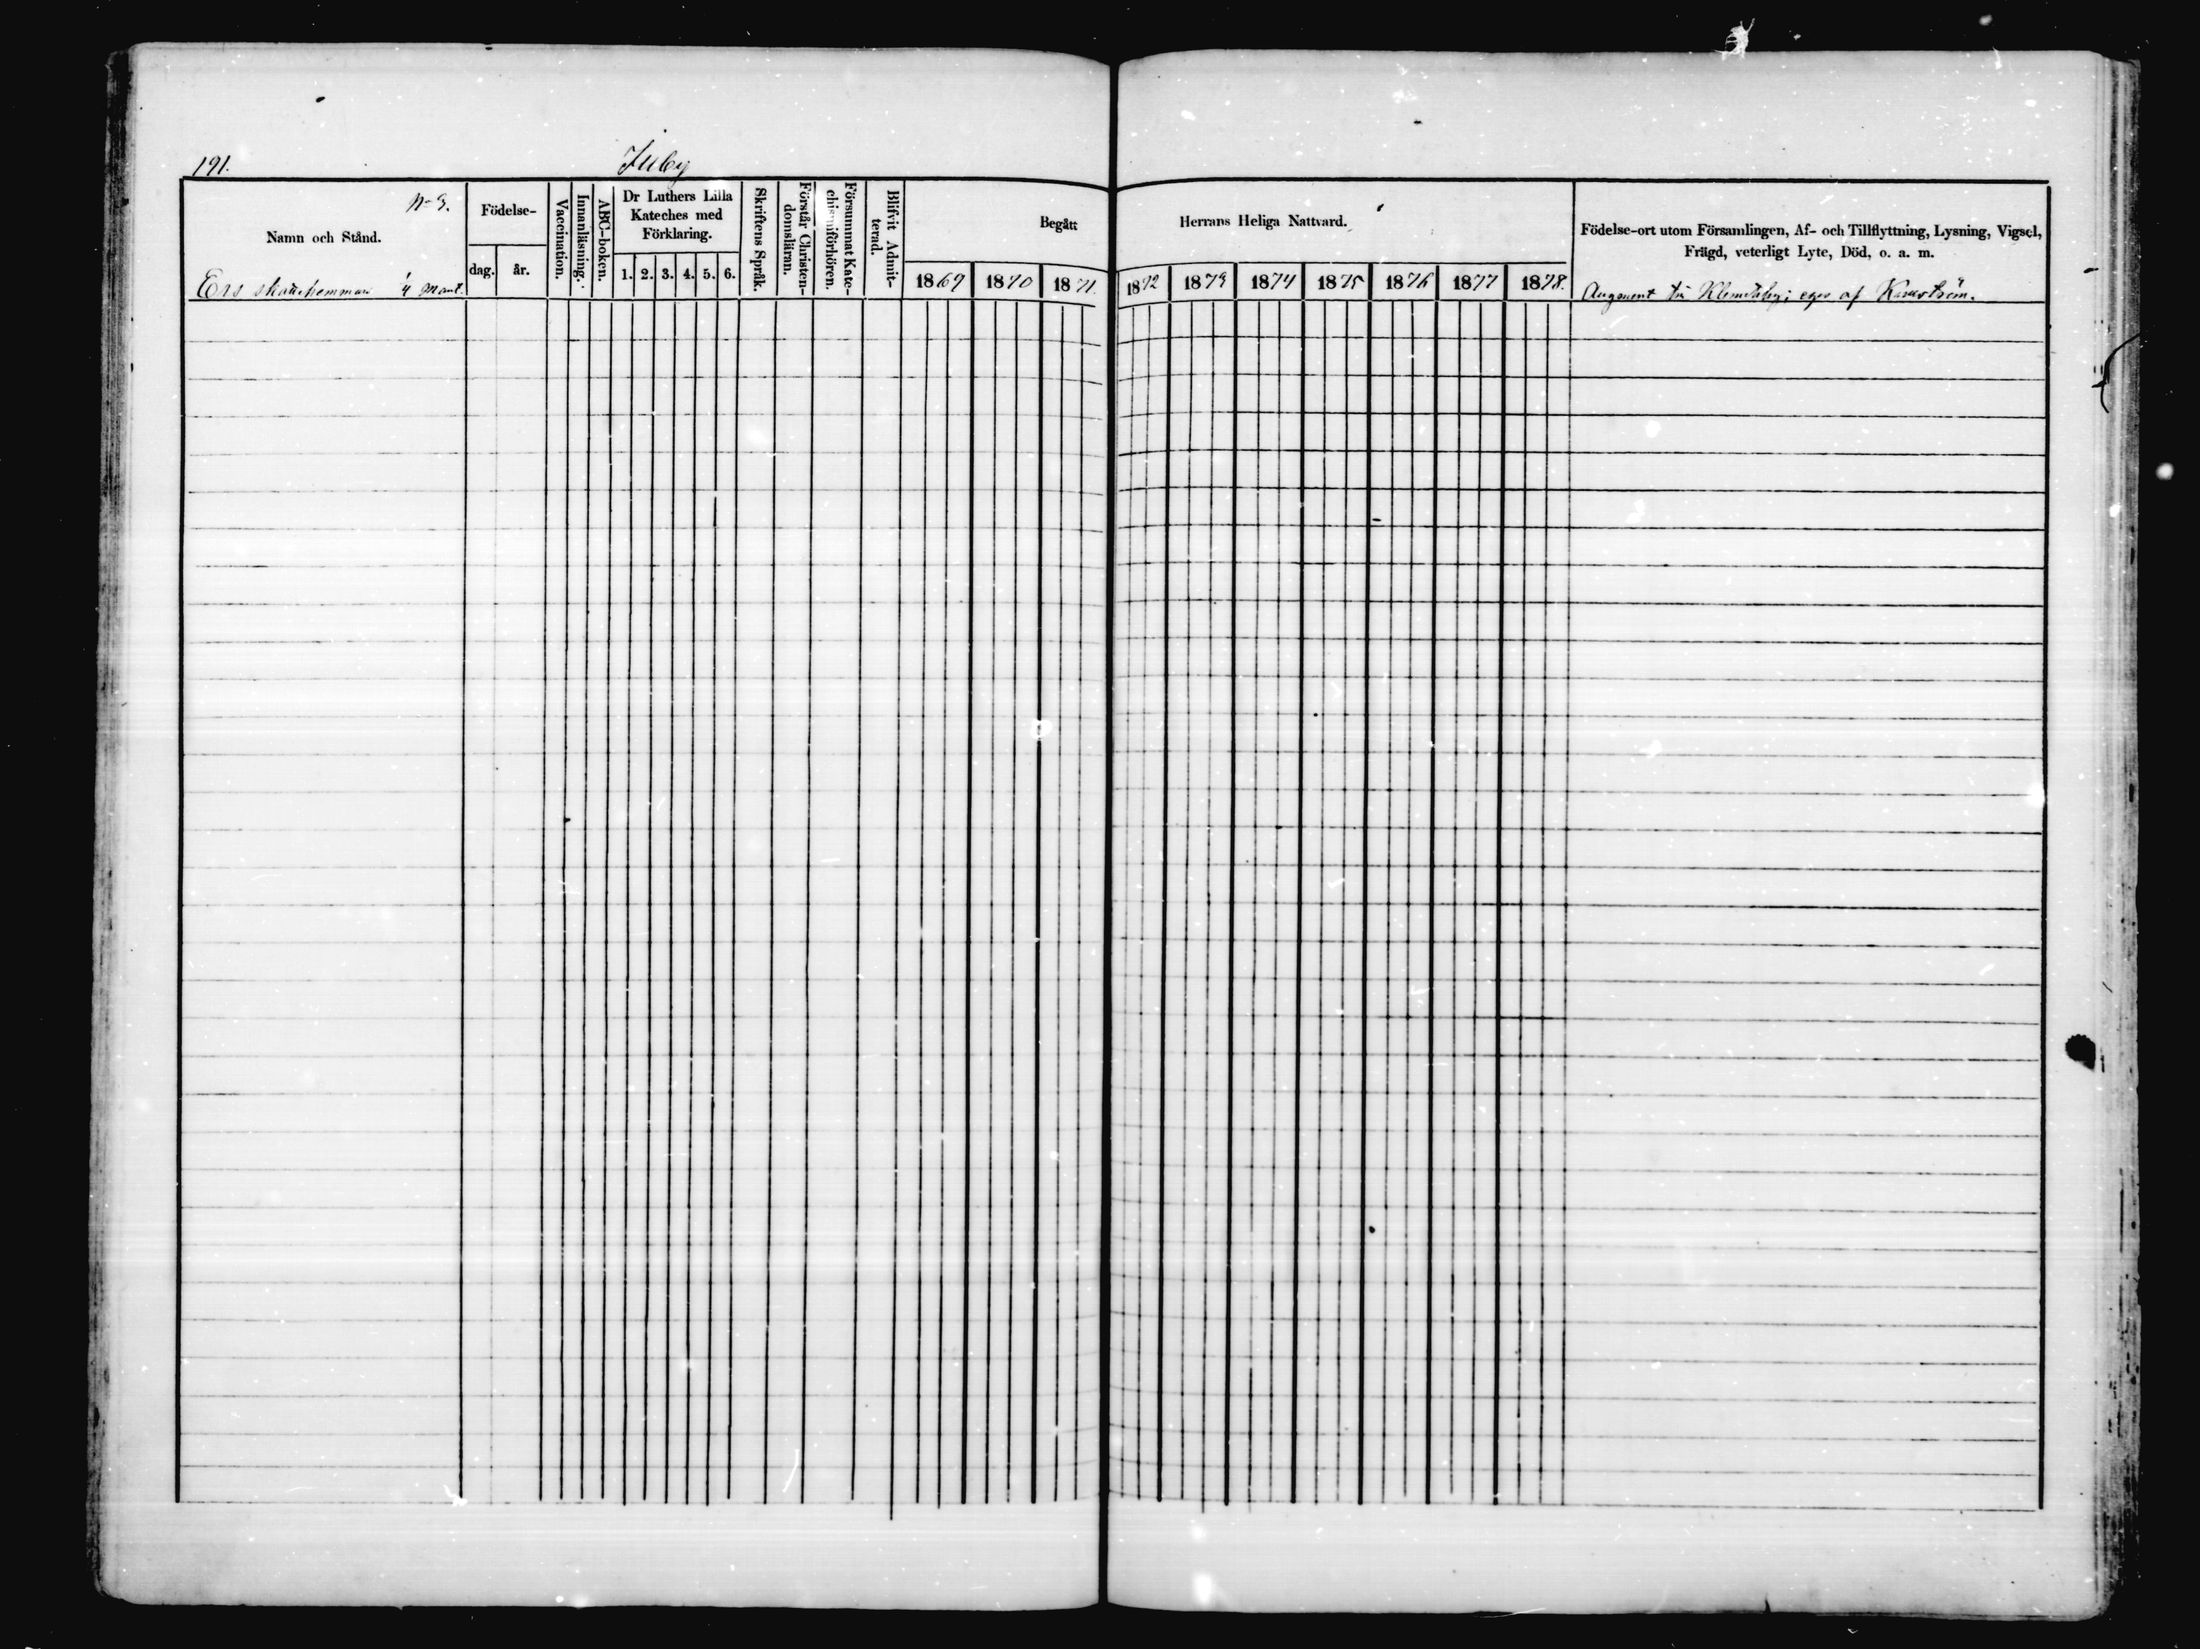 191.
Juby
N=3.
Namn och Stånd.
Ers skattehemman ¼ mant.
Födelse-
dag.
år.
Vaccination.
Innanläsning.
ABC-boken.
Dr Luthers Lilla
Kateches med
Förklaring.
1. 2. 3. 4. 5. 6.
Skriftens Språk.
Förstår Christen-
domsläran.
Försummat Kate-
chismiförhören.
Blifvit Admit-
terad.
Begått Herrans Heliga Nattvard.
1869 1870 1871. 1872 1873 1874 1875 1876 1877 1878.
Födelse-ort utom Församlingen, Af- och Tillflyttning, Lysning, Vigsel,
Frägd, veterligt Lyte, Död, o. a. m.
Augment till eges af